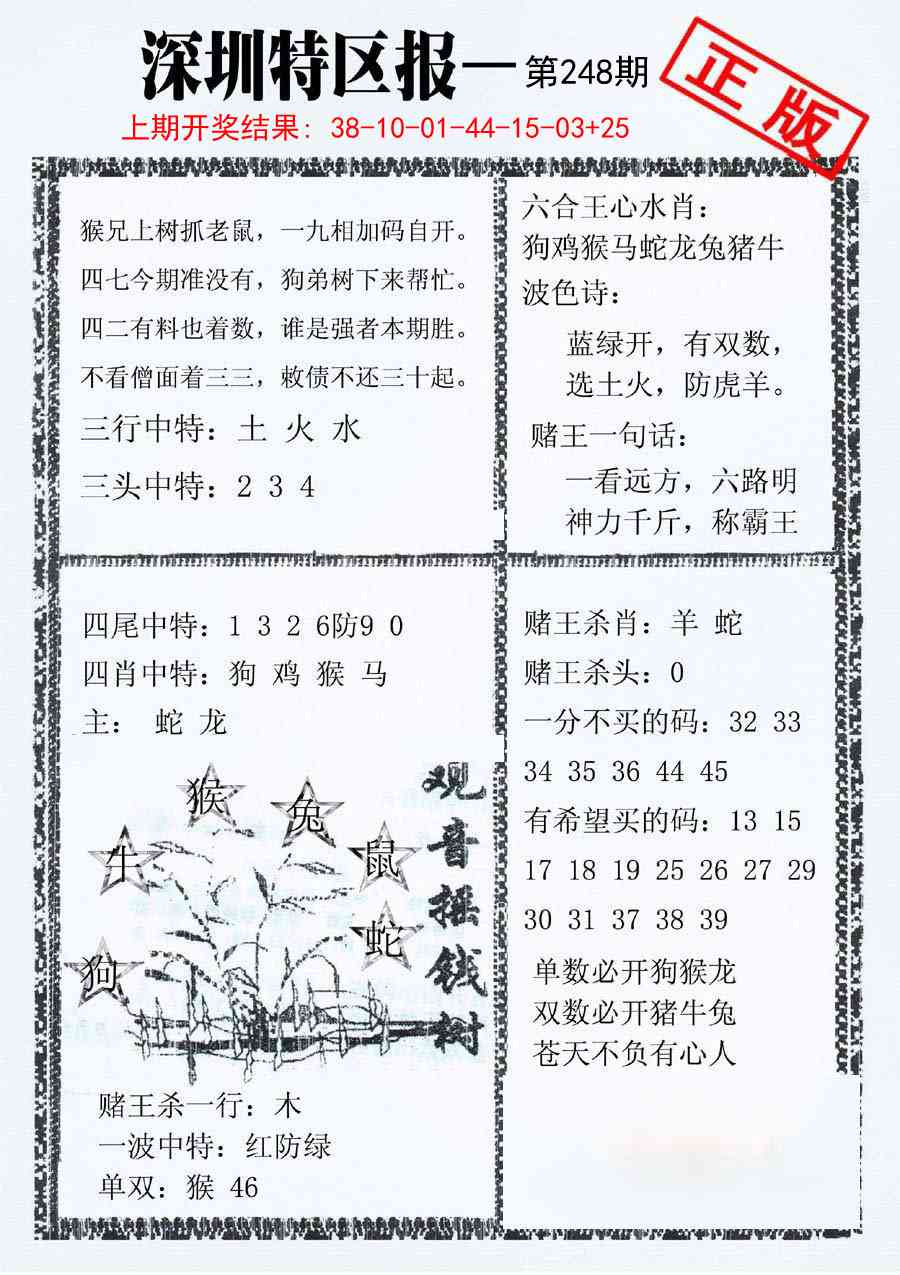 深圳特区报—第248期
正版
上期开奖结果：38-10-01-44-15-03+25
猴兄上树抓老鼠，一九相加码自开。
四七今期准没有，狗弟树下来帮忙。
四二有料也着数，谁是强者本期胜。
不看僧面着三三，敇债不还三十起。
三行中特：土 火 水
三头中特：2 3 4
六合王心水肖：
狗鸡猴马蛇龙兔猪牛
波色诗：
蓝绿开，有双数，
选土火，防虎羊。
赌王一句话：
一看远方，六路明
神力千斤，称霸王
四尾中特：1 3 2 6防9 0
四肖中特：狗 鸡 猴 马
主： 蛇 龙
猴
兔
牛
鼠
蛇
狗
观音摇钱树
赌王杀一行：木
一波中特：红防绿
单双：猴 46
赌王杀肖：羊 蛇
赌王杀头：0
一分不买的码：32 33
34 35 36 44 45
有希望买的码：13 15
17 18 19 25 26 27 29
30 31 37 38 39
单数必开狗猴龙
双数必开猪牛兔
苍天不负有心人